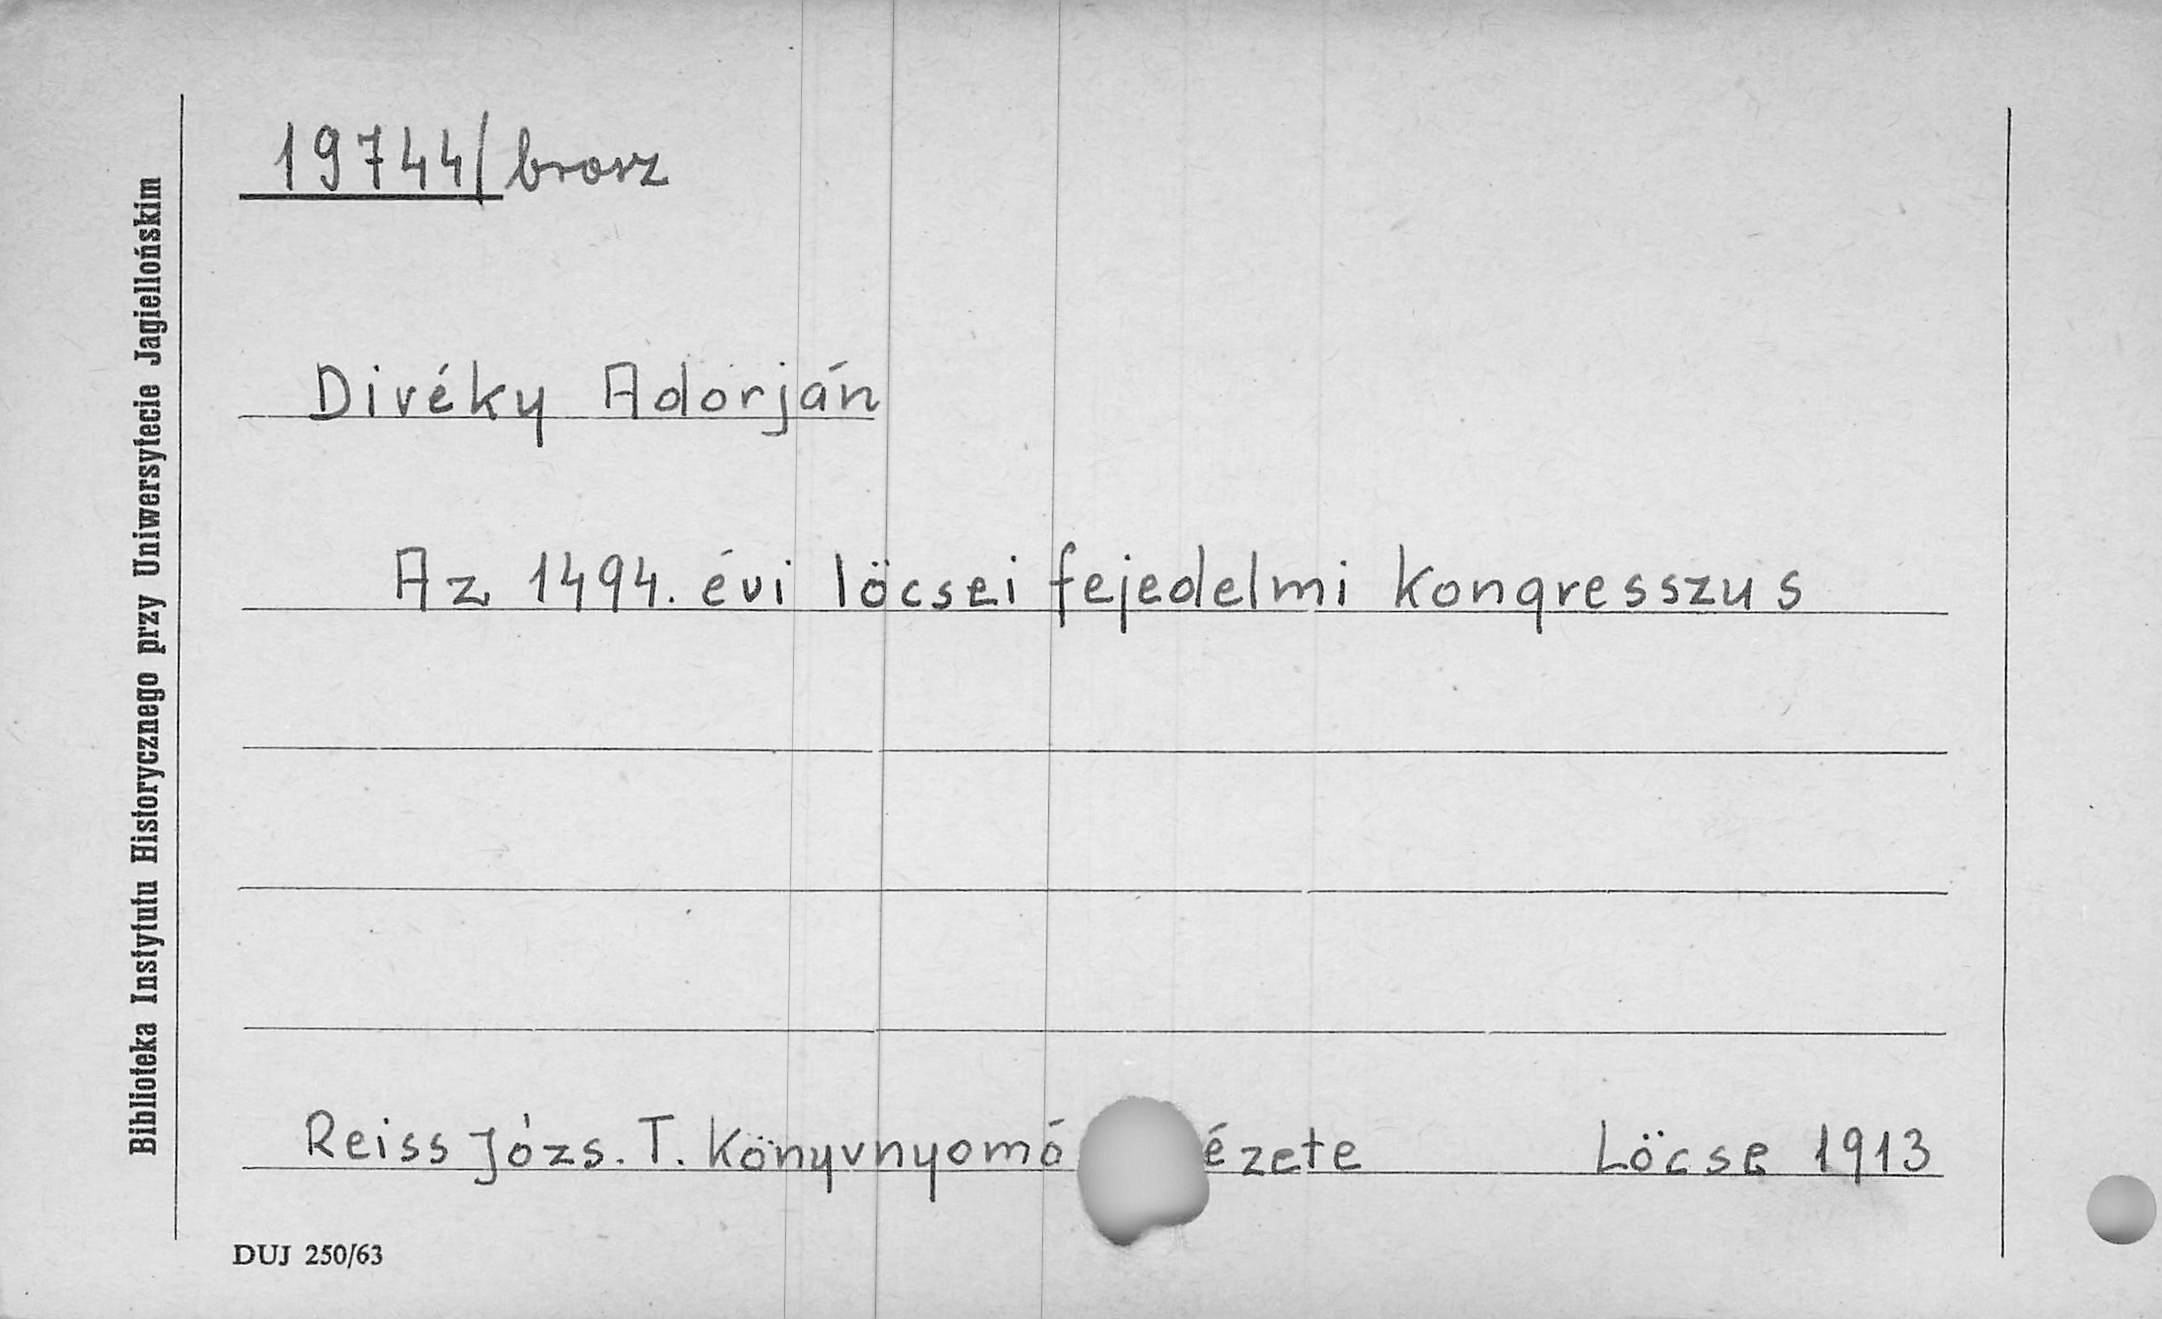 19744/brosz
Divéky Adorján
Az 1494. évi löcsei fejedelmi kongresszus
Reiss Józs. T. Könyvnyomó ézete Löcse 1913
DUJ 250/63
Biblioteka Instytutu Historycznego przy Uniwersytecie Jagiellońskim